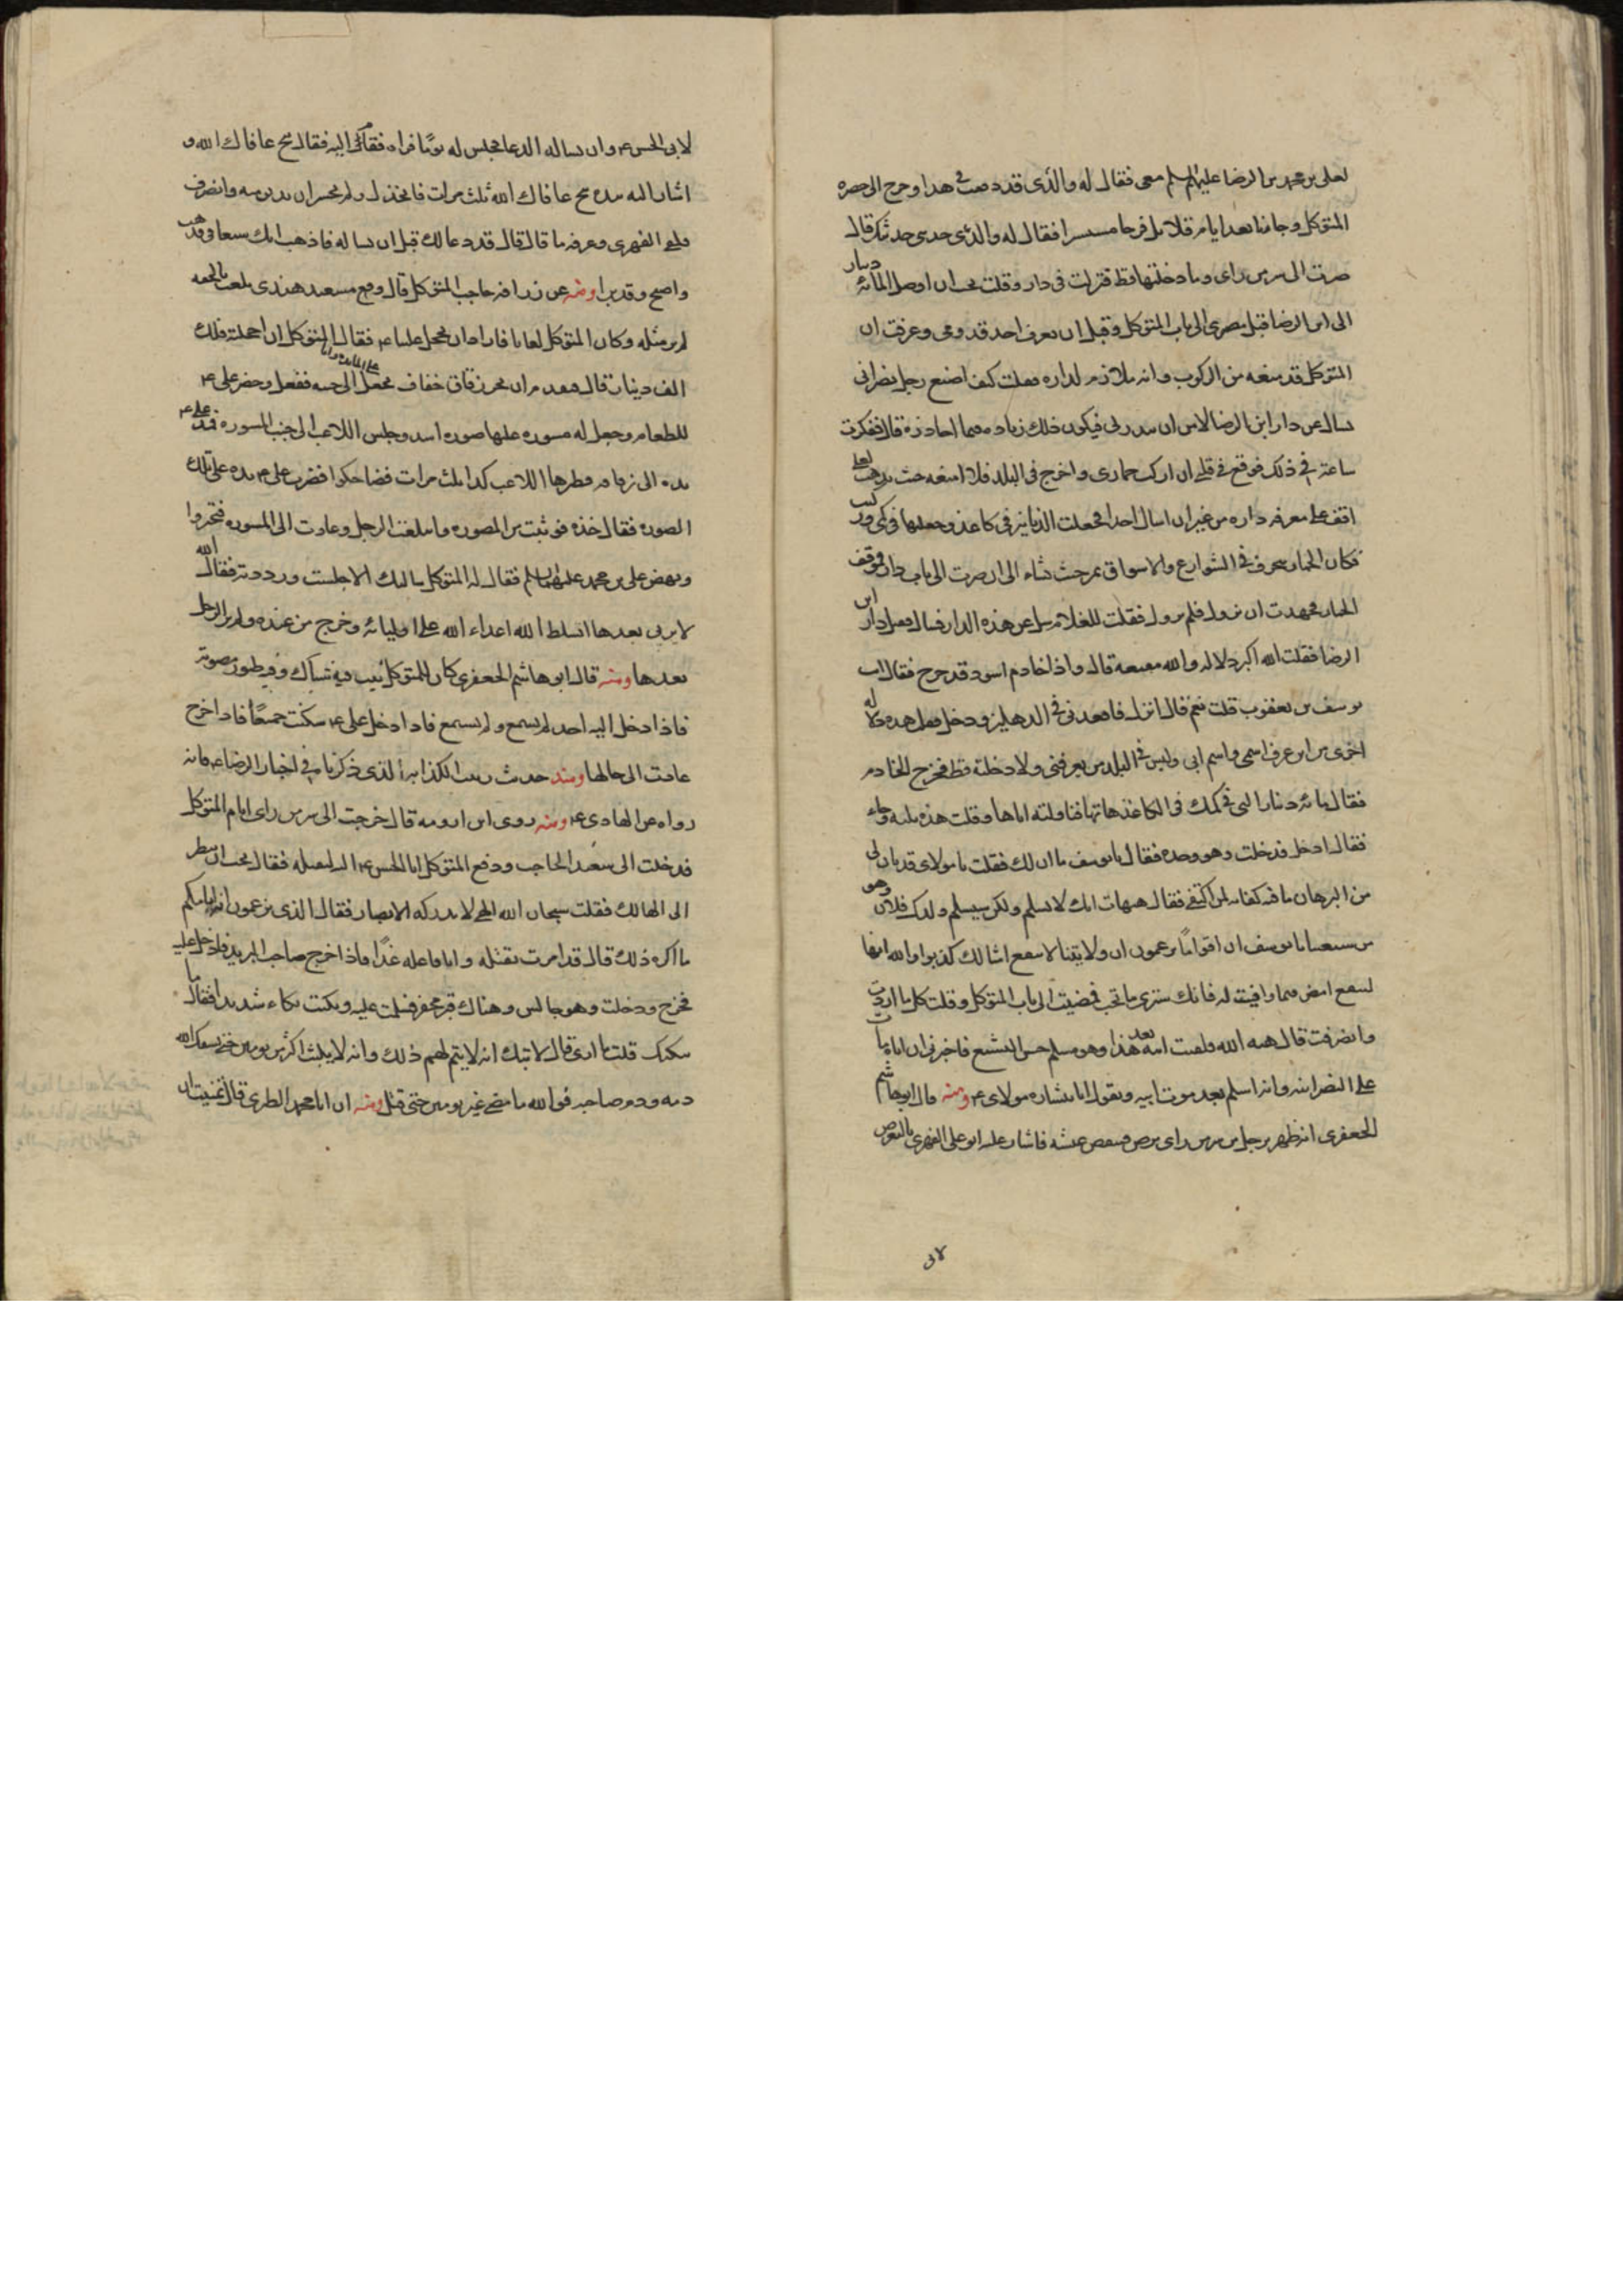 لعلى بن محمد بن الرضا عليهم السلم معى فقال له والدى قد وفقت فى هذا وخرج الى حضرة
المتوكل وجاءنا بعد ايام قلائل فرحا مستبشرا فقال له والدى حدثنى حديثك قال
صرت الى سر من راى وما دخلتها قط فنزلت فى دار وقلت يجب ان اوصل المائة دينار
الى ابن الرضا قبل مصيرى الى باب المتوكل وقبل ان يعرف احد قدومى وعرفت ان
المتوكل قد منعه من الركوب وانه ملازم لداره فقلت كيف اصنع رجل نصرانى
يسال عن دار ابن الرضا لا امن ان ينذر بى فيكون ذلك زيادة فيما احاذره قال ففكرت
ساعة فى ذلك فوقع فى قلبى ان اركب حمارى واخرج فى البلد فلا امنعه حيث يذهب لعلى
اقف على معرفة داره من غير ان اسال احدا فجعلت الدنانير فى كاغذ وجعلتها فى كمى وركبت
فكان الحمار يخرق فى الشوارع والاسواق يمر حيث شاء الى ان صرت الى باب دار فوقف
الحمار فجهدت ان يزول فلم يزول فقلت للغلام سل عن هذه الدار فسال فقيل دار ابن
الرضا فقلت الله اكبر دلالة والله مقنعة قال واذا خادم اسود قد خرج فقال انت
يوسف بن يعقوب قلت نعم قال انزل فاقعدنى فى الدهليز ودخل فقلت هذه دلالة
اخرى من اين عرف اسمى واسم ابى وليس فى البلد من يعرفنى ولا دخلته قط فخرج الخادم
فقال المائة دينار التى فى كمك فى الكاغذ هاتها فناولته اياها وقلت هذه ثلثة وجاء
فقال ادخل فدخلت وهو وحده فقال يا يوسف ما ان لك فقلت يا مولاى قد بان لى
من البرهان ما فيه كفاية لمن اكتفى فقال هيهات انك لا تسلم ولكن سيسلم ولدك فلان وهو
من شيعتنا يا يوسف ان اقواما يزعمون ان ولايتنا لا تنفع امثالك كذبوا والله انها
لتنفع امض فيما وافيت له فانك سترى ما تحب فمضيت الى باب المتوكل وقلت كل ما اردت
وانصرفت قال هبة الله فلقيت ابنه بعد هذا وهو مسلم حسن التشيع فاخبرنى ان اباه مات
على النصرانية وانه اسلم بعد موت ابيه ويقول انا بشارة مولاى ع ومنه قال ابو هاشم
الجعفرى انه ظهر برجل من سر من راى برص فتنغص عيشه فاشار عليه ابو على الفهرى بالتعرض
لابى
لابى الحسن ع وان يساله الدعا فجلس له يوما فراه فقام اليه فقال تنح عافاك الله و
اشار اليه بيده تنح عافاك الله ثلث مرات فانخذل ولم يجسر ان يدنو منه وانصرف
فلقى الفهرى وعرفه ما قال قال قد دعا لك قبل ان تساله فاذهب انك ستعافى فذهب
واصبح وقد برا ومنه عن زرافه حاجب المتوكل قال وقع مشعبد هندى يلعب بالحقه
لم ير مثله وكان المتوكل لعابا فاراد ان يخجل عليا ع فقال المتوكل ان اخجلته فلك
الف دينار قال فتقدم ان يخبز رقاق خفاف تجعل على المائدة وانا الى جنبه ففعل وحضر على ع
للطعام وجعل له مسوره عليها صوره اسد وجلس اللاعب الى جنب المسوره فمد على ع
يده الى رقاقه فطيرها اللاعب كذا ثلث مرات فتضاحكوا فضرب على ع يده على تلك
الصوره فقال خذه فوثبت من الصوره وابتلعت الرجل وعادت الى المسوره فتحيروا
ونهض على بن محمد عليهما السلم فقال له المتوكل سالتك الا جلست ورددته فقال والله
لا يرى بعدها اتسلط الله اعداء الله على اوليائه وخرج من عنده ولم ير الرجل
بعدها ومنه قال ابو هاشم الجعفرى كان للمتوكل بيت فيه شباك وفيه طيور مصوته
فاذا دخل اليه احد لم يسمع ولم يسمع فاذا دخل على ع سكنت جميعا فاذا خرج
عادت الى حالها ومنه حديث زينب الكذابه الذى ذكرناه فى اخبار الرضا ع فانه
رواه عن الهادى ع ومنه روى ابن ارومه قال خرجت الى سر من راى ايام المتوكل
فدخلت الى سعيد الحاجب ودفع المتوكل ابا الحسن ع اليه ليقتله فقال تحب ان تنظر
الى الهالك فقلت سبحان الله الهى لا تدركه الابصار فقال الذى تزعمون انه امامكم
ما اكره ذلك قال قد امرت بقتله وانا فاعله غدا فاذا خرج صاحب البريد فادخل عليه
فخرج ودخلت وهو جالس وهناك قبر يحفر فسلمت عليه وبكيت بكاء شديدا فقال ما
يبكيك قلت ما ارى قال لا تبك انه لا يتم لهم ذلك وانه لا يلبث اكثر من يومين حتى يسفك الله
دمه ودم صاحبه فوالله ما مضى غير يومين حتى قتل ومنه ان ابا محمد الطبرى قال تمنيت ان